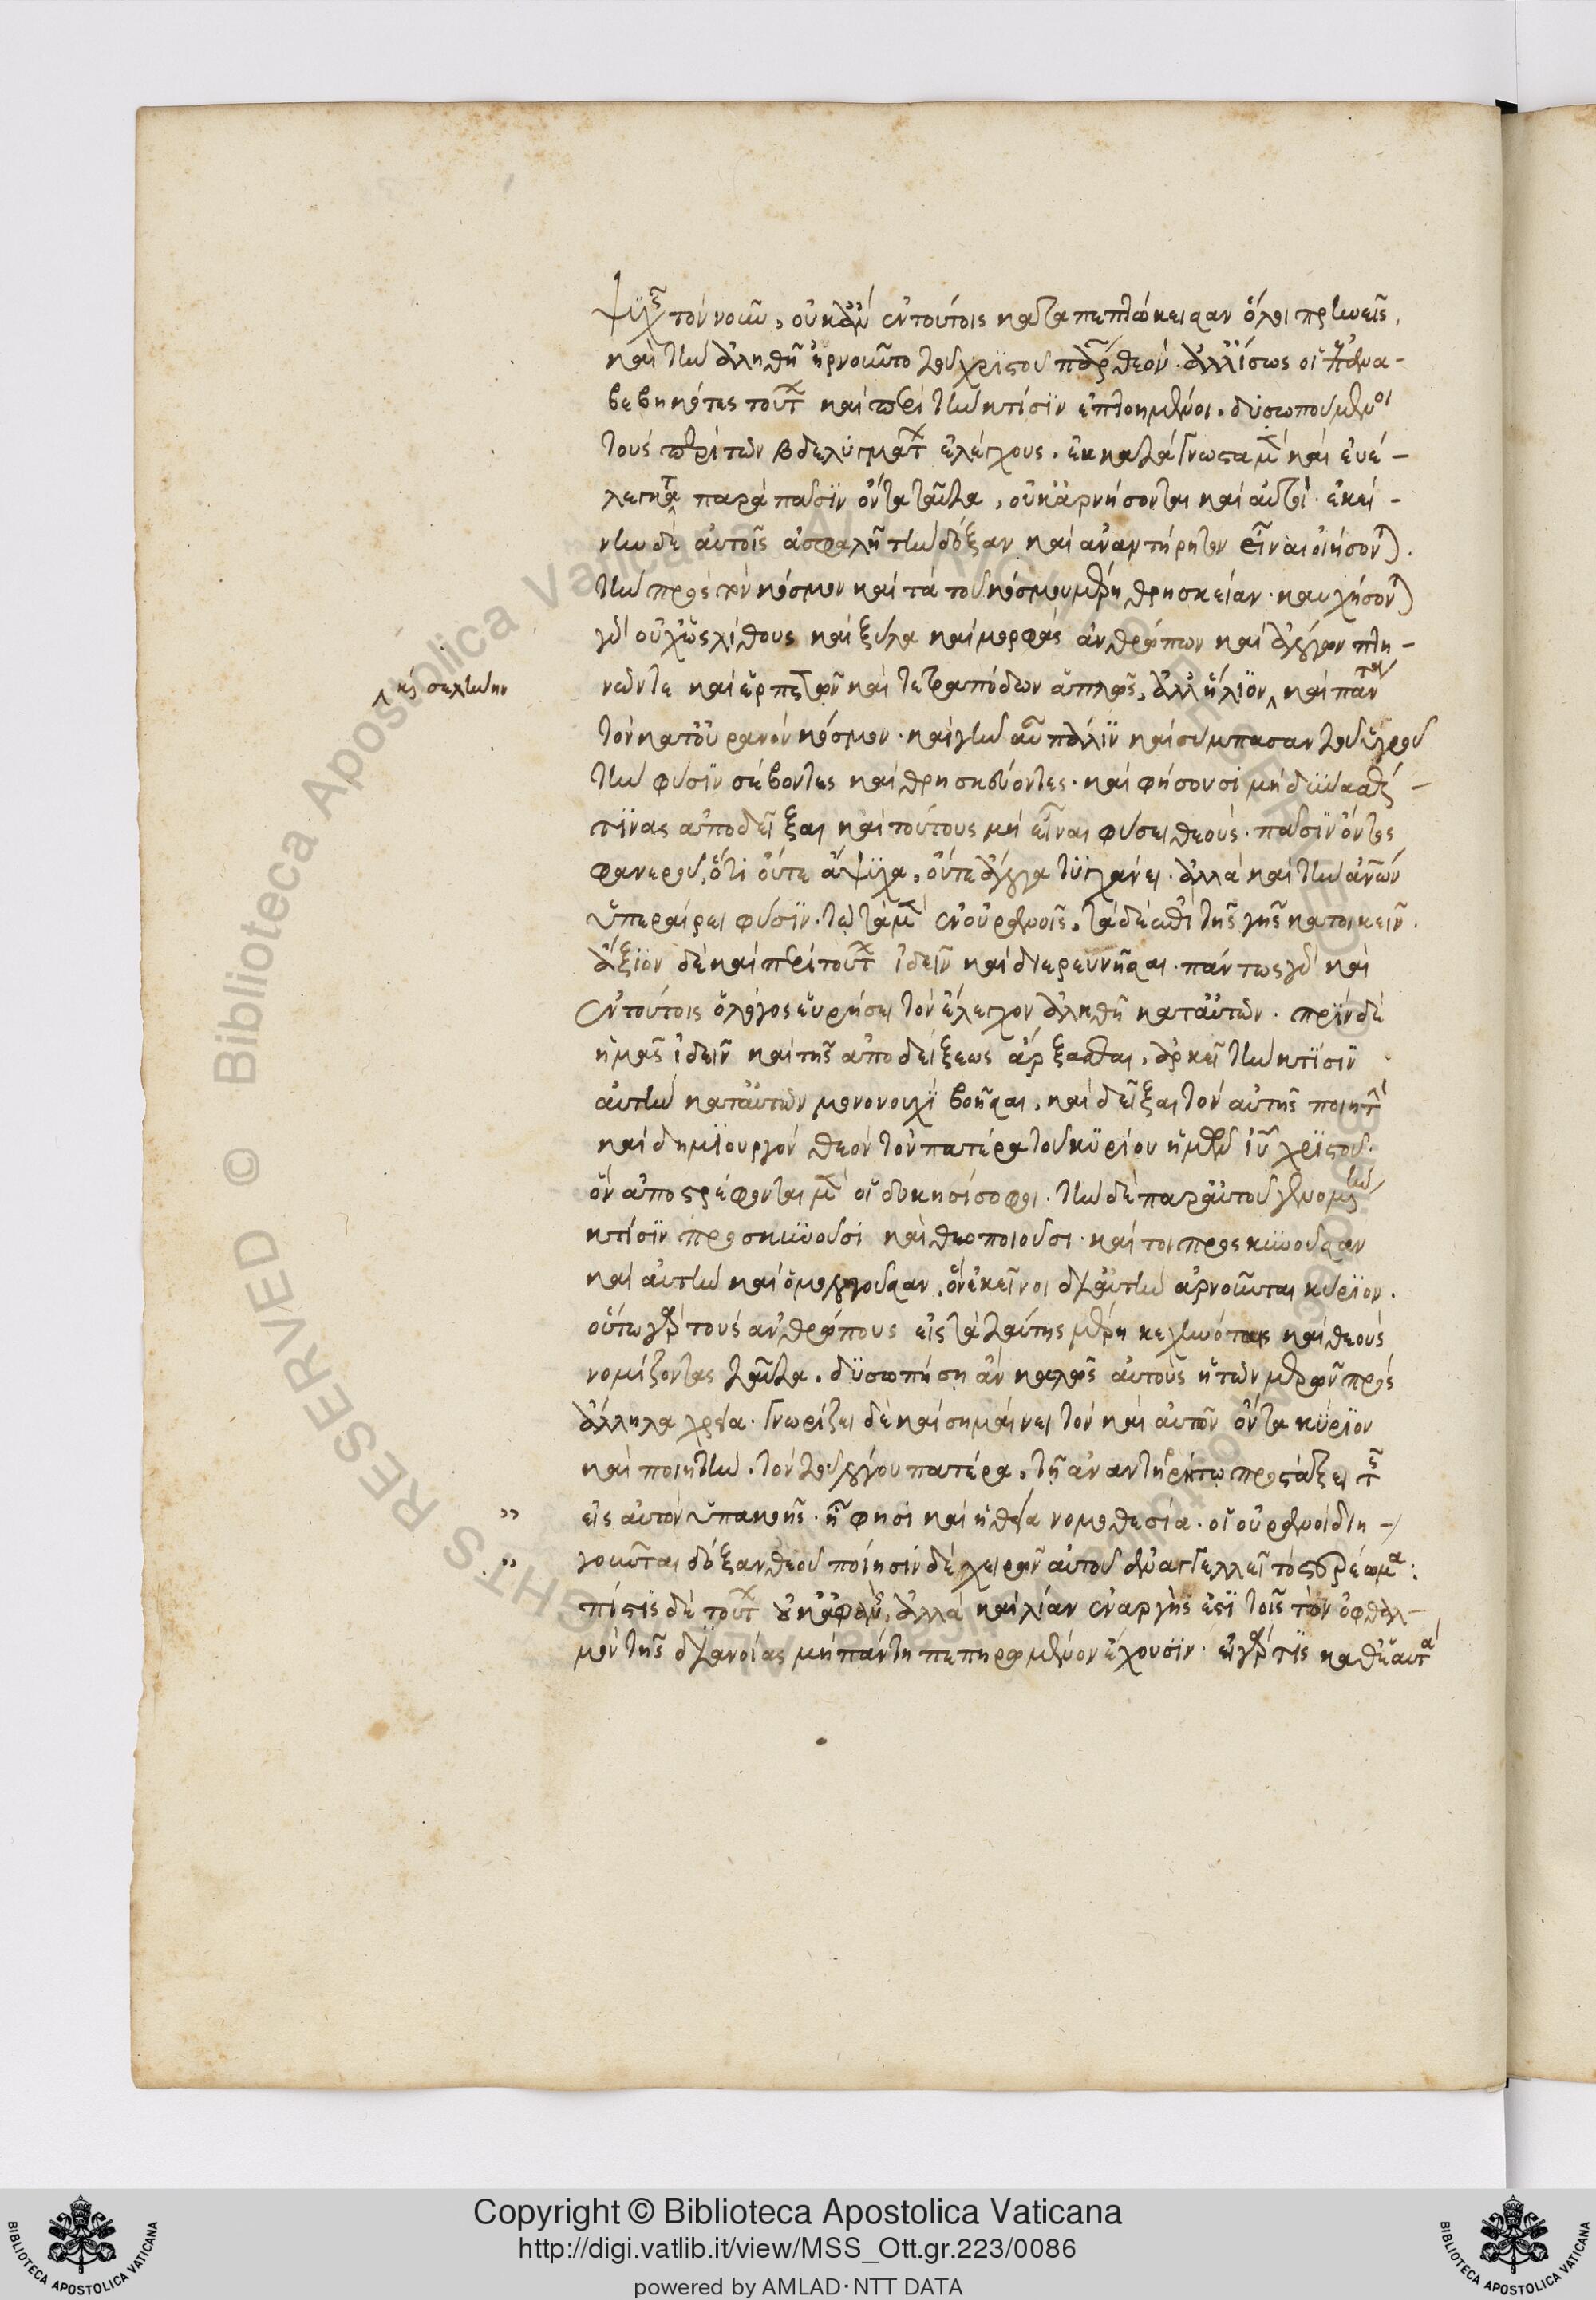 ψυχῆς τὸν νοῦν, οὐκ ἂν ἐν τούτοις καταπεπτώκεισαν ὅλοι πρηνεῖς,
καὶ τὸν ἀληθῆ ἠρνοῦντο τοῦ χριστοῦ πατέρα θεόν. ἀλλ' ἴσως οἱ ἐπανα-
βεβηκότες τούτων καὶ περὶ τὴν κτίσιν ἐπτοημένοι. δυσωπούμενοι
τοὺς περὶ τῶν βδελυγμάτων ἐλέγχους. εὐκατάγνωστα μὲν καὶ εὐέ-
λεγκτα παρὰ πᾶσιν ὄντα ταῦτα, οὐκ ἀρνήσονται καὶ αὐτοί. ἐκεί-
νην δὲ αὐτοῖς ἀσφαλῆ τὴν δόξαν καὶ ἀναντήρητον εἶναι οἰήσονται.
τὴν πρὸς τὸν κόσμον καὶ τὰ τοῦ κόσμου μέρη θρησκείαν. καυχήσονται
γὰρ οὐχ ὡς λίθους καὶ ξύλα καὶ μορφὰς ἀνθρώπων καὶ ἀλόγων πτη-
νῶν τε καὶ ἑρπετῶν καὶ τετραπόδων ἁπλῶς, ἀλλ' ἥλιον ‸ καὶ πάντα
‸ καὶ σελήνην
τὸν κατ' οὐρανὸν κόσμον. καὶ γῆν αὖ πάλιν καὶ σύμπασαν τοῦ ὑγροῦ
τὴν φύσιν σέβοντες καὶ θρησκεύοντες. καὶ φήσουσι μὴ δύνασθαί
τινας ἀποδεῖξαι καὶ τούτους μὴ εἶναι φύσει θεούς. πᾶσιν ὄντος
φανεροῦ, ὅτι οὔτε ἄψυχα, οὔτε ἄλογα τυγχάνει. ἀλλὰ καὶ τὴν ἀνθρώπων
ὑπεραίρει φύσιν. τῷ τὰ μὲν ἐν οὐρανοῖς, τὰ δὲ ἐπὶ τῆς γῆς κατοικεῖν.
ἄξιον δὲ καὶ περὶ τούτων ἰδεῖν καὶ διερευνῆσαι. πάντως γὰρ καὶ
ἐν τούτοις ὁ λόγος εὑρήσει τὸν ἔλεγχον ἀληθῆ κατ' αὐτῶν. πρὶν δὲ
ἡμᾶς ἰδεῖν καὶ τῆς ἀποδείξεως ἄρξασθαι, ἀρκεῖ τὴν κτίσιν
αὐτὴν κατ' αὐτῶν μονονουχὶ βοῆσαι, καὶ δεῖξαι τὸν αὐτῆς ποιητὴν
καὶ δημιουργὸν θεὸν τὸν πατέρα τοῦ κυρίου ἡμῶν ἰυ χριστοῦ.
ὃν ἀποστρέφονται μὲν οἱ δοκησίσοφοι. τὴν δὲ παρ' αὐτοῦ γενομένην
κτίσιν προσκυνοῦσι καὶ θεοποιοῦσι. καίτοι προσκυνοῦσαν
καὶ αὐτὴν καὶ ὁμολογοῦσαν, ὃν ἐκεῖνοι δι' αὐτὴν ἀρνοῦνται κύριον.
οὕτω γὰρ τοὺς ἀνθρώπους εἰς τὰ ταύτης μέρη κεχηνότας καὶ θεοὺς
νομίζοντας ταῦτα. δυσωπήσῃ ἂν καλῶς αὐτοὺς ἡ τῶν μερῶν πρὸς
ἄλληλα χρεία. γνωρίζει δὲ καὶ σημαίνει τὸν καὶ αὐτῶν ὄντα κύριον
καὶ ποιητὴν. τὸν τοῦ λόγου πατέρα. τῇ ἀναντηρήτῳ προστάξει τῆς
εἰς αὐτὸν ὑπακοῆς. ᾗ φησὶ καὶ ἡ θεία νομοθεσία. οἱ οὐρανοὶ διη-
γοῦνται δόξαν θεοῦ ποίησιν δὲ χειρῶν αὐτοῦ ἀναγγέλλει τὸ στερέωμα:
πίστις δὲ τούτων οὐκ ἀφανὴς, ἀλλὰ καὶ λίαν ἐναργής ἐστι τοῖς τὸν ὀφθαλ-
μὸν τῆς διανοίας μὴ πάντη πεπηρωμένον ἔχουσιν. εἰ γάρ τις καθ' ἑαυτὰ
Copyright © Biblioteca Apostolica Vaticana
http://digi.vatlib.it/view/MSS_Ott.gr.223/0086
powered by AMLAD·NTT DATA